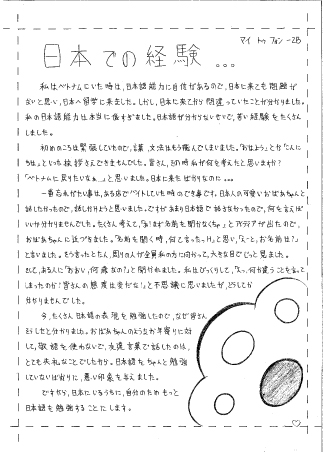 マイ トゥ フォン -2B
日本での経験...
私はベトナムにいた時は、日本語能力に自信があるので、日本に来ても問題が
ないと思い、日本へ留学に来ました。しかし、日本に来てから間違っていたことが分かりました。
私の日本語能力は本当に低すぎました。日本語が分からないせいで、苦い経験をたくさん
しました。
初めのころは緊張していたので、言葉、文法はもう飛んでしまいました。「おはよう」とか「こんに
ちは」といった挨拶さえできませんでした。皆さん、その時私が何を考えたと思いますか?
「ベトナムに戻りたいなぁ…」と思いました。日本に来たばかりなのに...
一番忘れがたい事は、ある店でバイトしていた時のできごとです。日本人の可愛いおばあちゃんと
話したかったので、話しかけようと思いました。ですがあまり日本語で話せなかったので、何を言えば
いいか分かりませんでした。たくさん考えて、「あ!まず名前を聞かなくちゃ」とアイデアが出たので、
おばあちゃんに近づきました。「名前を聞く時、何と言ったっけ」と思い、「えーと、お名前は?」
と言いました。そう言ったとたん、周りの人が全員私の方に向かって、大きな目でじっと見ました。
そして、ある人に「おおい、何歳なの?」と聞かれました。私はびっくりして、「えっ、何か違うことを言って
しまったのか?皆さんの態度は変だな!」と不思議に思いましたが、どうしても
分かりませんでした。
今、たくさん日本語の表現を勉強したので、なぜ皆さん
そうしたと分かりました。おばあちゃんのようなお年寄りに対
して、敬語を使わないで、友達言葉で話したのは、
とても失礼なことでしたから。日本語をちゃんと勉強
していないばかりに、悪い印象を与えました。
ですから、日本にいるうちに、自分のためもっと
日本語を勉強することにします。